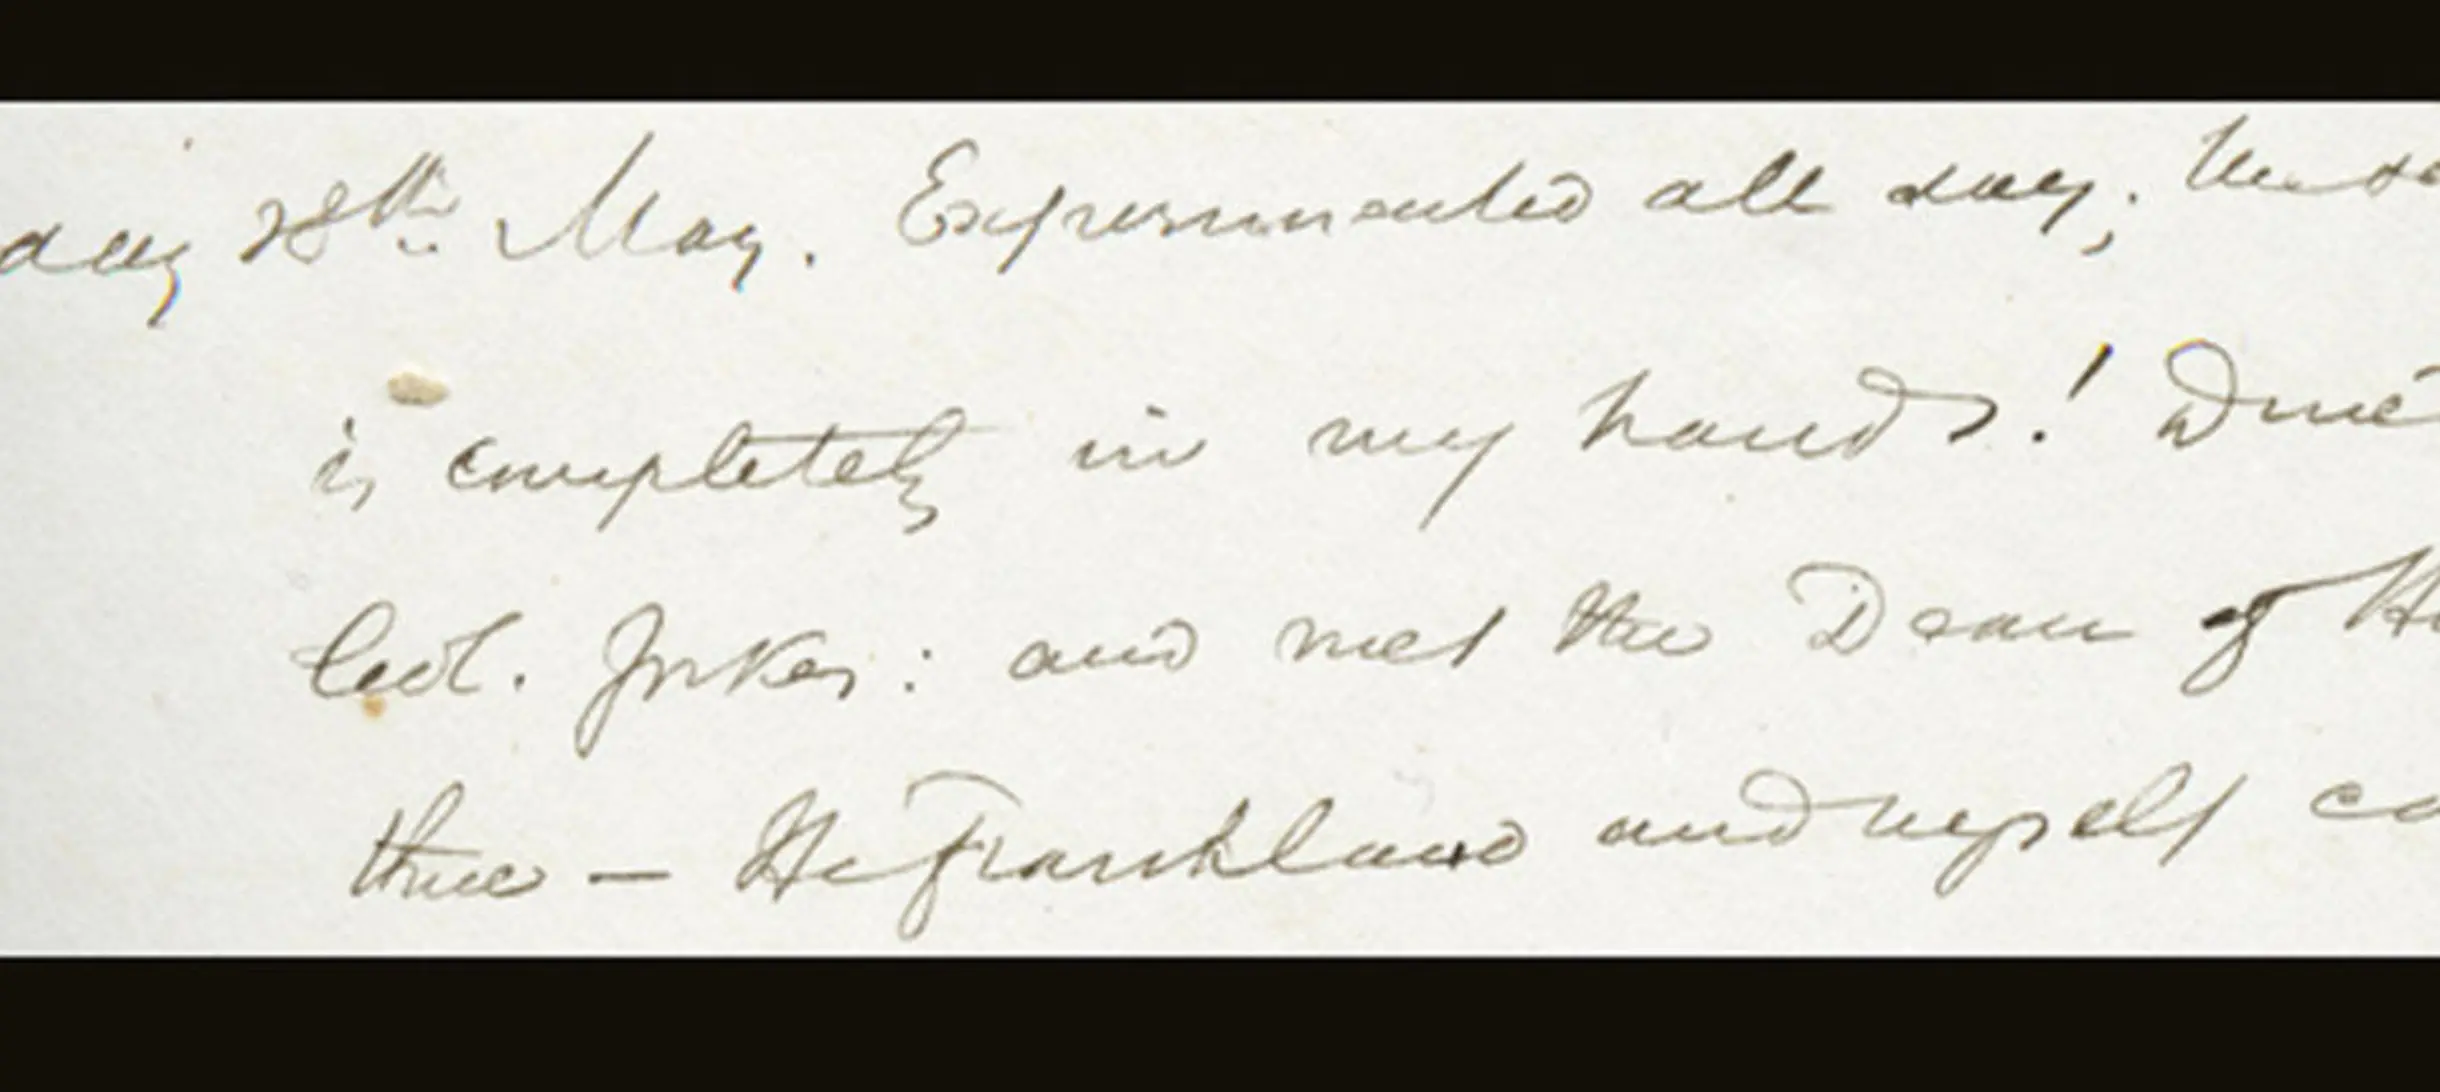 day 18th May. Experimented all day; the
is completely in my hands! Dine
Col. Yorkes: and met the Dean of
there — He Frankland and myself